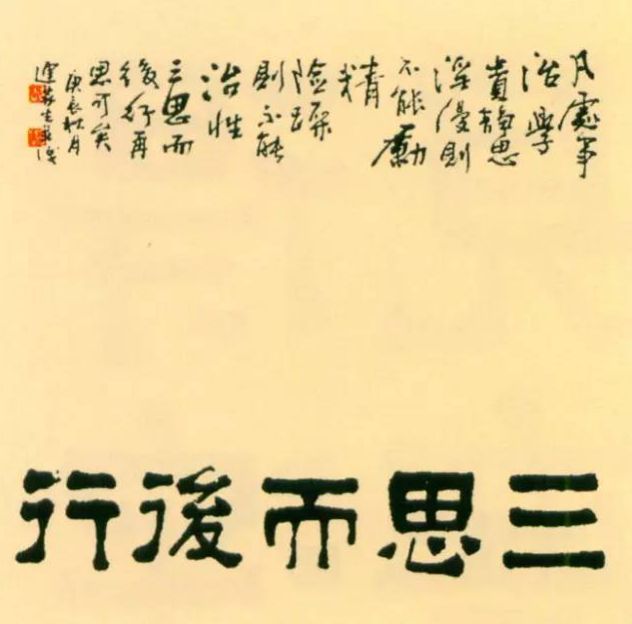 凡處事
治學
貴静思
淫漫則
不能勵
精
險躁
則不能
治性
三思而
後行再
思可矣
庚辰秋月
三思而後行